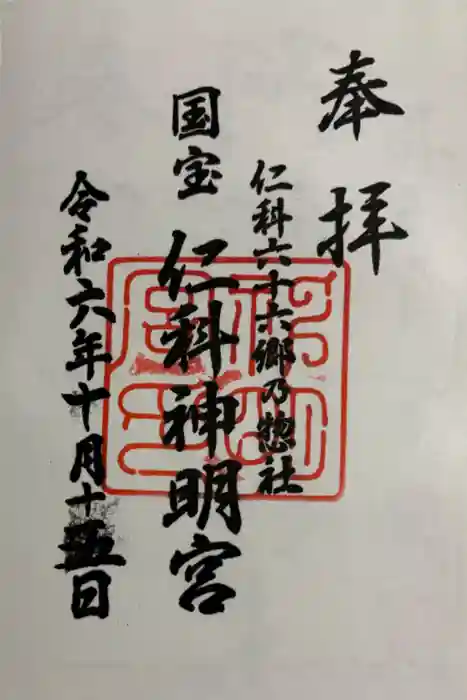 奉拝
仁科六十六郷乃惣社
国宝
仁科神明宮
令和六年十月十五日